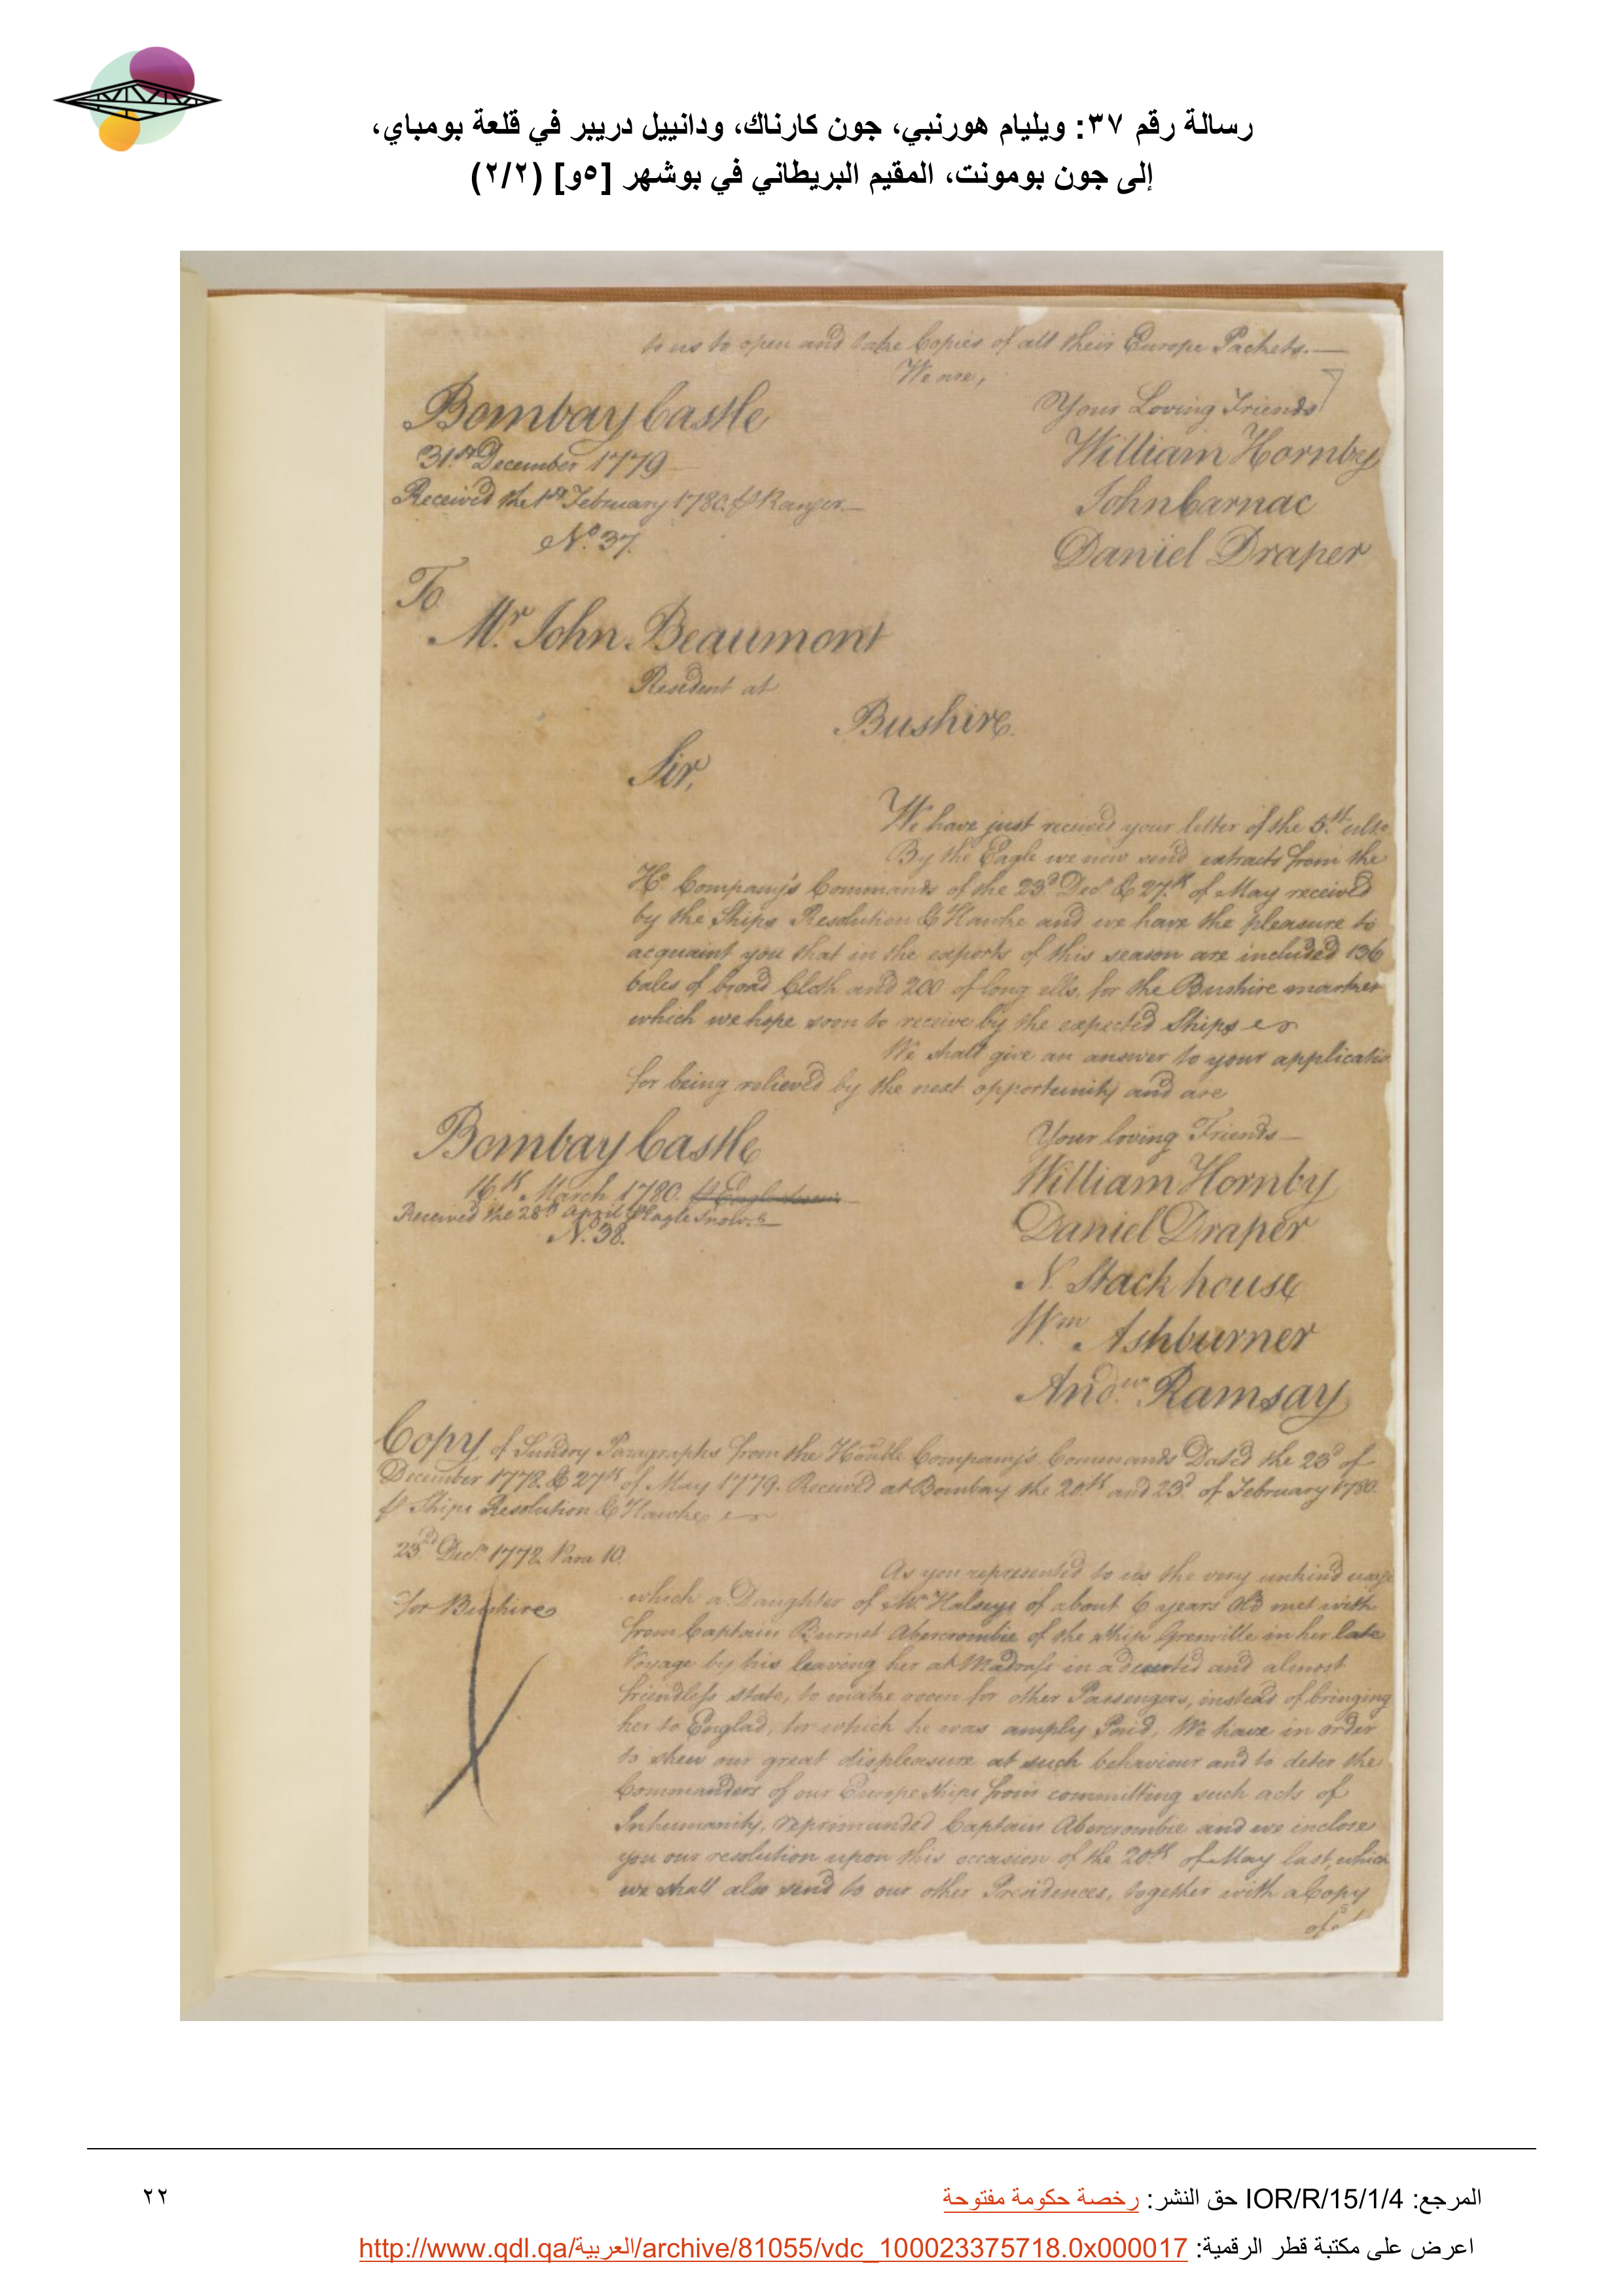 رسالة رقم ٣٧: ويليام هورنبي، جون كارناك، ودانييل دريبر في قلعة بومباي،
إلى جون بومونت، المقيم البريطاني في بوشهر [٥و] (٢/٢)
to us to open and take Copies of all their Europe Packets.—
We are,
Your Loving Friends
Bombay Castle
William Hornby
31st December 1779
John Carnac
Received the 1st February 1780. ⅌ Ranger.—
No. 37.
Daniel Draper
To
Mr. John Beaumont
Resident at
Bushire.
Sir,
We have just received your letter of the 5th. ulto.
By the Eagle we now send extracts from the
Ho. Company's Commands of the 23d Decr. & 27th of May received
by the Ships Resolution & Hawke and we have the pleasure to
acquaint you that in the exports of this season are included 136
bales of broad Cloth and 200 of long ells, for the Bushire market
which we hope soon to receive by the expected Ships
We shall give an answer to your applicatio
for being relieved by the next opportunity and are
Your loving Friends—
Bombay Castle
William Hornby
16th March 1780.
Received the 28th April ⅌ Eagle Snow.
Daniel Draper
N. 38.
N. Stackhouse
Wm. Ashburner
Andw. Ramsay
Copy of Sundry Paragraphs from the Honble Company's Commands Dated the 23d of
December 1778. & 27th of May 1779. Received at Bombay the 20th and 23d. of February 1780.
⅌ Ships Resolution & Hawke
23d Decr. 1778. Para 10.
As you represented to us the very unkind usage
for Bushire
which a Daughter of Mr. Halseys of about 6 years Old met with
from Captain Burnet Abercrombie of the Ship Grenville in her late
Voyage by his leaving her at Madrass in a deserted and almost
friendless state, to make room for other Passengers, instead of bringing
her to Englad, for which he was amply Paid, We have in order
to shew our great displeasure at such behaviour and to deter the
Commanders of our Europe Ships from committing such acts of
Inhumanity, reprimanded Captain Abercrombie and we inclose
you our resolution upon this occasion of the 20th of May last, which
we shall also send to our other Presidences, together with a Copy
of
المرجع: IOR/R/15/1/4 حق النشر: رخصة حكومة مفتوحة
٢٢
اعرض على مكتبة قطر الرقمية: http://www.qdl.qa/العربية/archive/81055/vdc_100023375718.0x000017